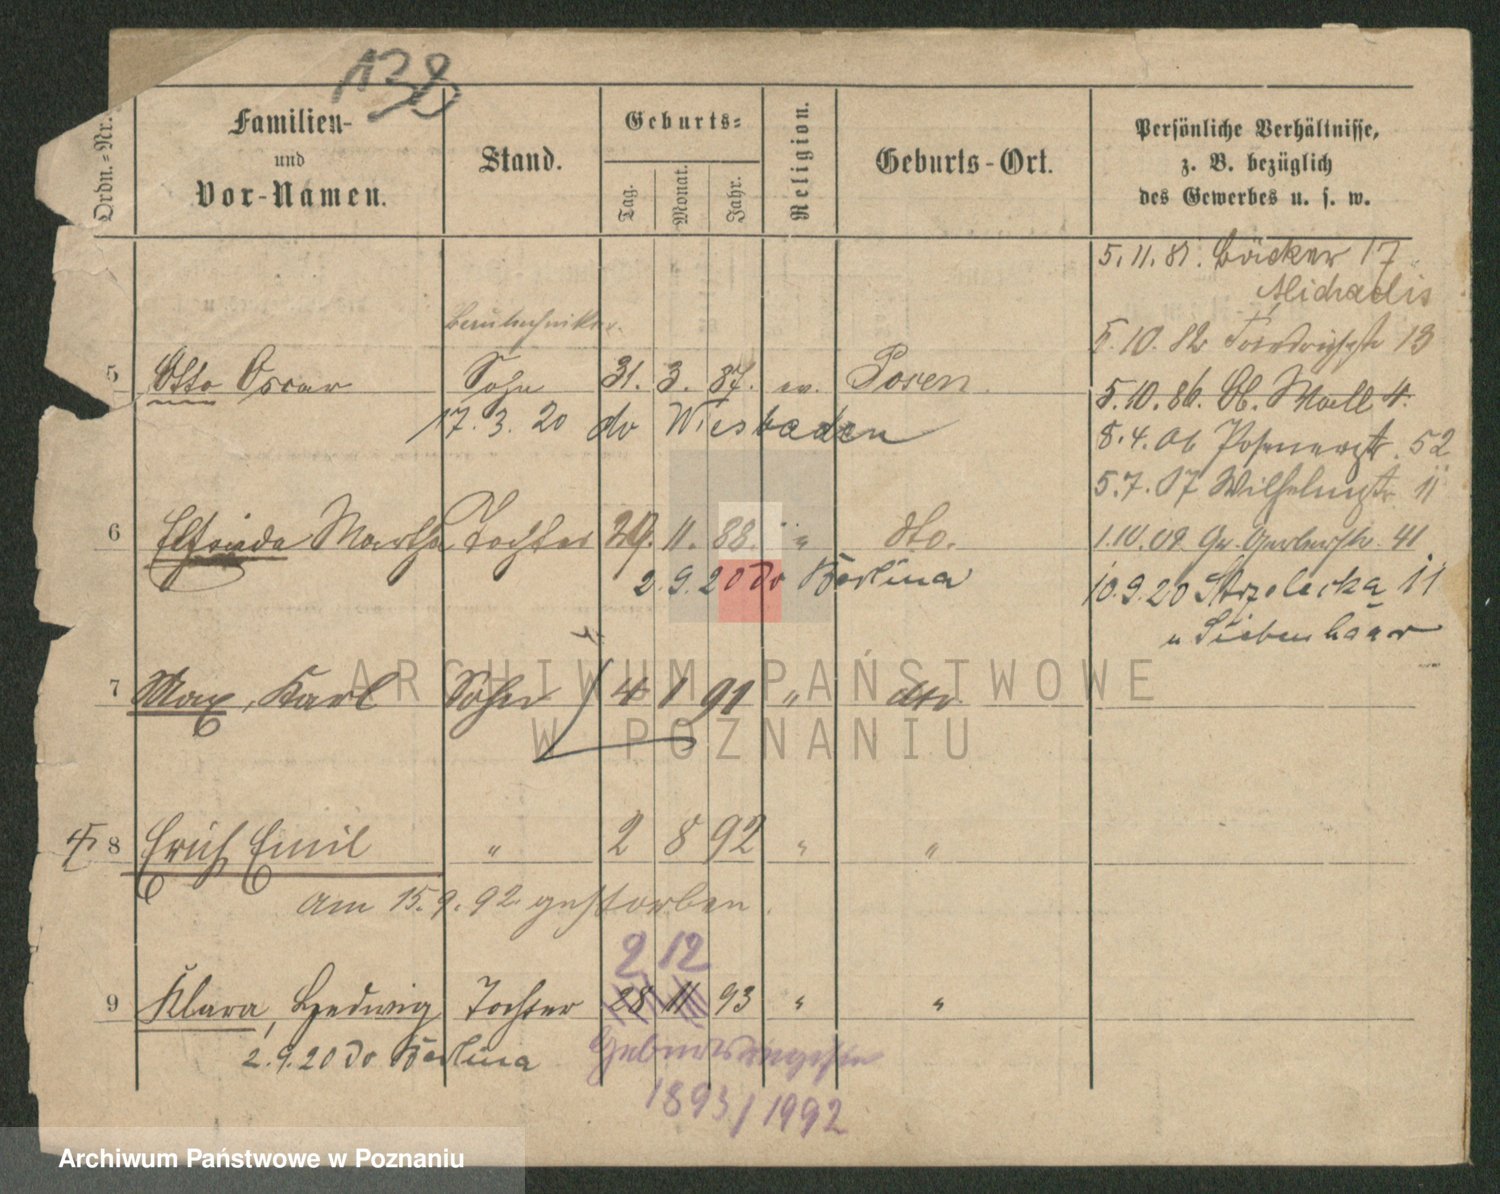 138
Ordn.-Nr.
Familien-
und
Vor-Namen.
Stand.
Geburts-
Tag.
Monat.
Jahr.
Religion.
Geburts-Ort.
Persönliche Verhältnisse,
z. B. bezüglich
des Gewerbes u. s. w.
5.11.81. Bäcker 17
Michaelis
5.10.82 13
5.10.86. Ob. Wall 4.
8.4.06 Posenerstr. 52
5.7.07 Wilhelmstr. 11
1.10.08. Gr. Gerberstr. 41
10.9.20 Strzelecka 11
u Siebenhaar
5 Otto Oscar Sohn 31. 3. 87. ev. Posen.
17.3.20 do Wiesbaden
6 Elfrieda Martha Tochter 29. 11. 88. " dto.
2.9.20 do Berlina
7 Max, Karl Sohn 4 1 91 " dto
8 Erich Emil " 2 8 92 " "
am 15.9.92 gestorben.
2 12
9 Klara, Hedwig Tochter 28 11 93 " "
2.9.20 do Berlina
1893/1992
ARCHIWUM PAŃSTWOWE
W POZNANIU
Archiwum Państwowe w Poznaniu